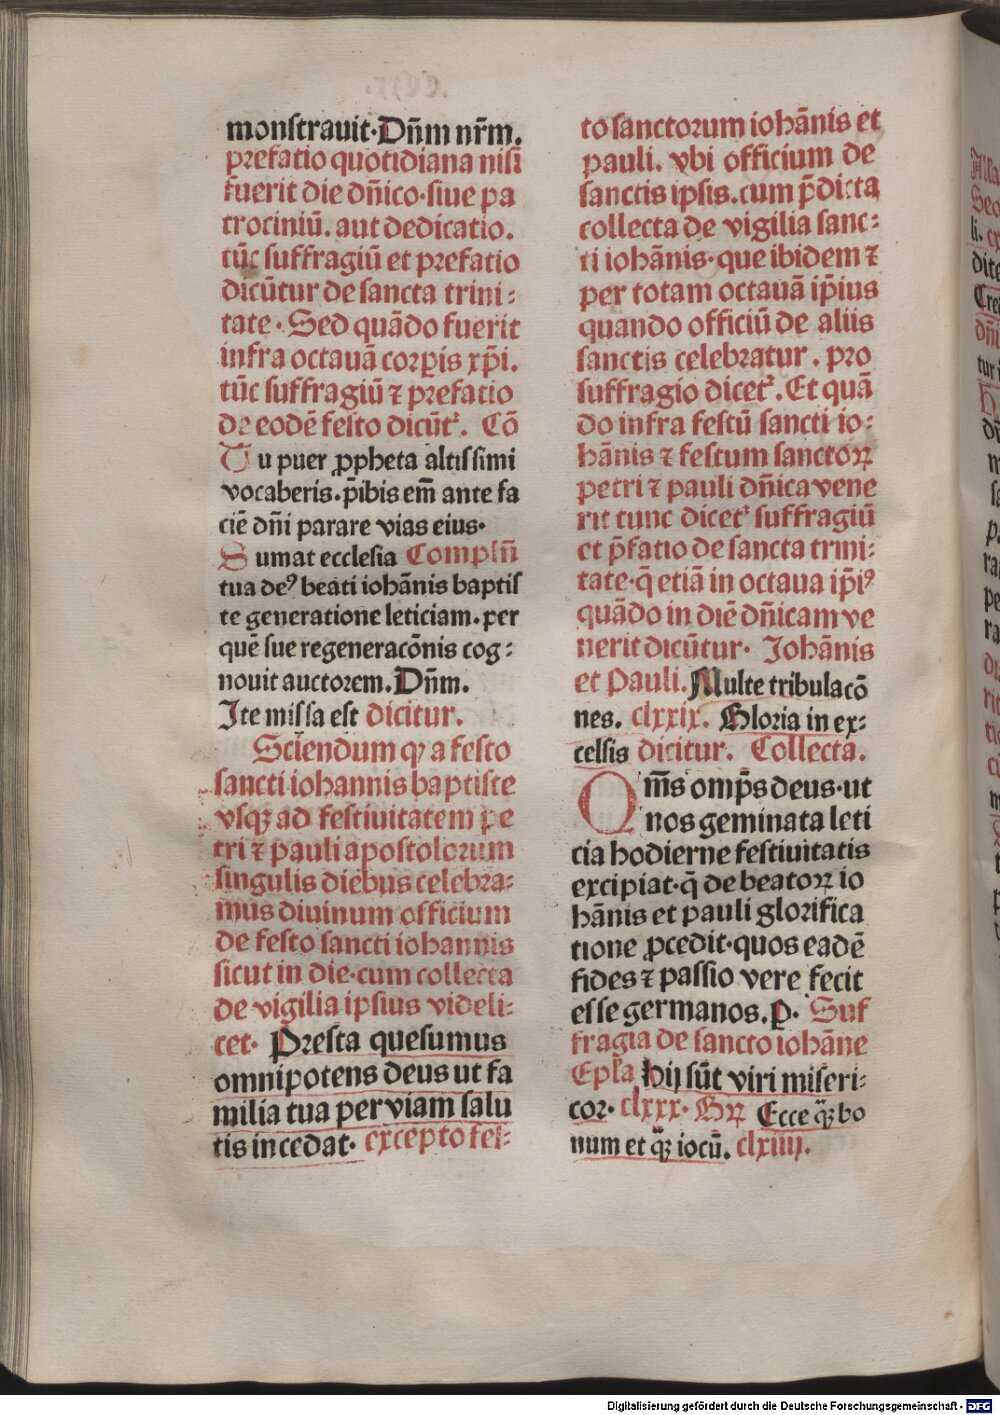 monstrauit·Dñm nr̃m.
prefatio quotidiana nisi
fuerit die dñico·siue pa
trociniũ. aut dedicatio.
tũc suffragiũ et prefatio
dicũtur de sancta trini:
tate·Sed quãdo fuerit
infra octauã corꝑis xp̃i.
tũc suffragiũ ⁊ prefatio
de eodẽ festo dicũt᷑. Cõ
Tu puer ꝓpheta altissimi
vocaberis.p̃ibis em̃ ante fa
ciẽ dñi parare vias eius·
Sumat ecclesia Complñ
tua deꝰ beati iohãnis baptis
te generatione leticiam.per
quẽ sue regeneracõnis cog:
nouit auctorem.Dñm.
Ite missa est dicitur.
Sciendum ꝙ a festo
sancti iohannis baptiste
vsqꝫ ad festiuitatem pe
tri ⁊ pauli apostolorum
singulis diebus celebra:
mus diuinum officium
de festo sancti iohannis
sicut in die·cum collecta
de vigilia ipsius videli:
cet· Presta quesumus
omnipotens deus ut fa
milia tua per viam salu
tis incedat· excepto fes:
to sanctorum iohãnis et
pauli. vbi officium de
sanctis ipsis.cum p̃dicta
collecta de vigilia sanc:
ti iohãnis·que ibidem ⁊
per totam octauã ip̃ius
quando officiũ de aliis
sanctis celebratur. pro
suffragio dicet᷑.Et quã
do infra festũ sancti io:
hãnis ⁊ festum sanctoꝝ
petri ⁊ pauli dñica vene
rit tunc dicet᷑ suffragiũ
et p̃fatio de sancta trini:
tate·q̃ etiã in octaua ip̃iꝰ
quãdo in diẽ dñicam ve
nerit dicũtur· Iohãnis
et Pauli. Multe tribulacõ
nes. clxxix. Gloria in ex:
celsis dicitur. Collecta.
Om̃s omp̃s deus·ut
nos geminata leti
cia hodierne festiuitatis
excipiat·q̃ de beatoꝝ io
hãnis et pauli glorifica
tione ꝓcedit·quos eadẽ
fides ⁊ passio vere fecit
esse germanos.ꝑ· Suf
fragia de sancto iohãne
Epl̃a Hij sũt viri miseri:
cor· clxxx· Gꝝ Ecce qͣꝫ bo
num et qͣꝫ iocũ. clxiiij.
Digitalisierung gefördert durch die Deutsche Forschungsgemeinschaft - DFG